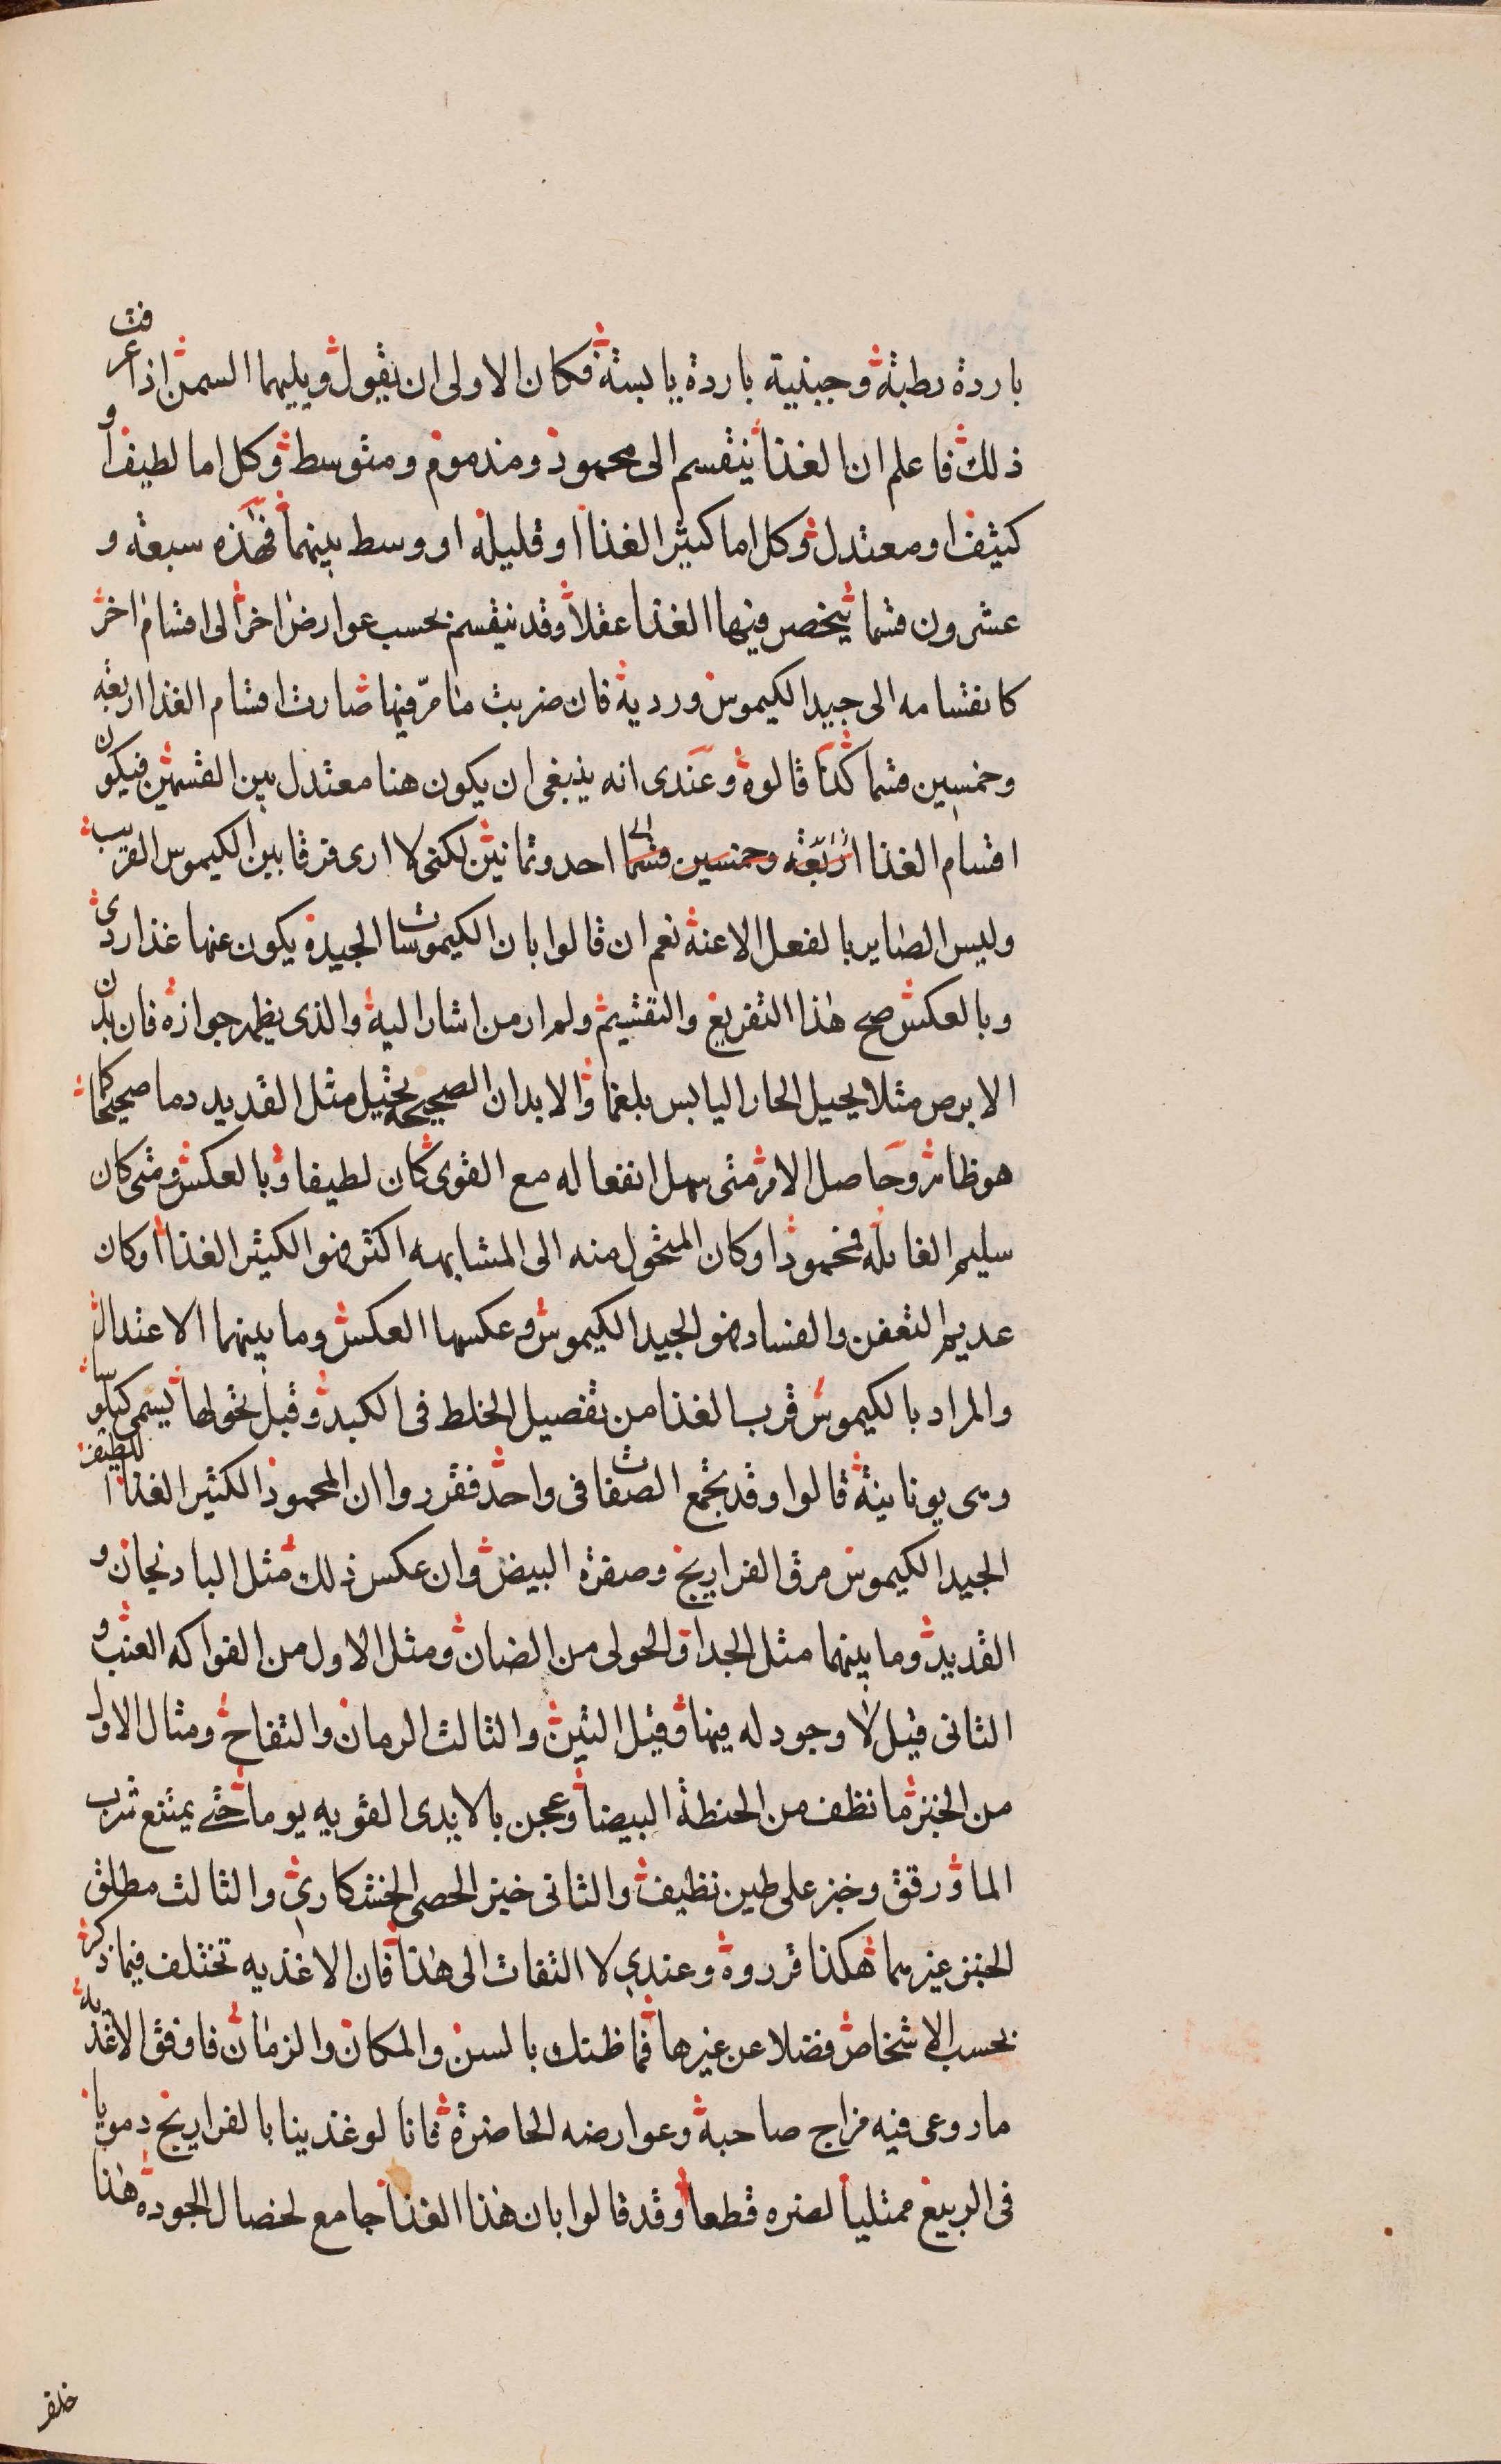 باردة رطبة وجبنية باردة يابسة فكان الاولى ان يقول ويليهما السمن اذا عرفت
ذلك فاعلم ان الغذا ينقسم الى محمود ومذموم ومتوسط وكل اما لطيف او
كثيف او معتدل وكل اما كثير الغذا او قليله او وسط بينهما فهذه سبعة و
عشرون قسما ينحصر فيها الغذا عقلا وقد ينقسم بحسب عوارض اخر الى اقسام اخر
كانقسامه الى جيد الكيموس ورديه فان ضربت ما مر فيها صارت اقسام الغذا اربعة
وخمسين قسما كذا قالوه وعندى انه ينبغى ان يكون هنا معتدل بين القسمين فيكون
اقسام الغذا اربعة وخمسين قسما الى احد وثمانين لكنى لا ارى فرقا بين الكيموس القريب
وليس الصاير بالفعل الا عنه نعم ان قالوا بان الكيموسات الجيدة يكون عنها غذا ردى
وبالعكس صح هذا التفريع والتقسيم ولم ار من اشار اليه والذى يظهر جوازه فان بدن
الابرص مثلا يحيل الحار اليابس بلغما والابدان الصحيحة تحيل مثل القديد دما صحيحا كما
هو ظاهر وحاصل الامر متى سهل انفعاله مع القوى كان لطيفا وبالعكس ومتى كان
سليم الغائلة فمحمود او كان المتحول منه الى المشابهه اكثر فهو الكثير الغذا او كان
عديم التعفن والفساد فهو الجيد الكيموس وعكسها العكس وما بينهما الاعتدال
والمراد بالكيموس قرب الغذا من تفصيل الخلط فى الكبد وقبل تحولها يسمى كيلوسا
وهى يونانية قالوا وقد تجمع الصفات فى واحد فقرروا ان المحمود الكثير الغذا اللطيف
الجيد الكيموس مرق الفراريج وصفرة البيض وان عكس ذلك مثل الباذنجان و
القديد وما بينهما مثل الجدا والحولى من الضان ومثل الاول من الفواكه العنب و
الثانى قيل لا وجود له فيها وقيل التين والثالث الرمان والتفاح ومثال الاول
من الخبز ما نظف من الحنطة البيضا وعجن بالايدى القويه يوما حتى يمتنع شرب
الما ورقق وخبز على طين نظيف والثانى خبز الحصى الخشكارى والثالث مطلق
الخبز غيرهما هكذا قرروه وعندى لا التفات الى هذا فان الاغذيه تختلف فيما ذكر
بحسب الاشخاص فضلا عن غيرها فما ظنك بالسن والمكان والزمان فاوفق الاغذيه
ما روعى فيه مزاج صاحبه وعوارضه الحاضرة فانا لو غذينا بالفراريج دمويا
فى الربيع ممتليا لضره قطعا وقد قالوا بان هذا الغذا جامع لخصال الجودة هذا